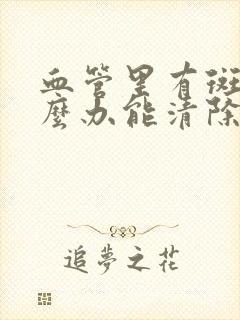 血管里有斑
麼办能清除
追夢之花